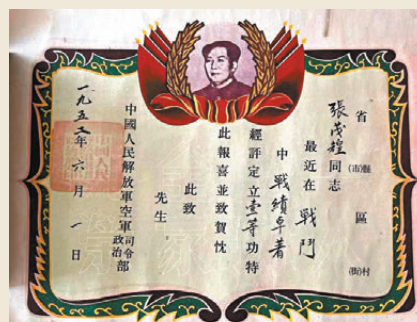 省 縣(市) 區 村(街)
張茂同志
最近在戰鬥
中戰績卓著
經評定立壹等功特
此報喜並致賀忱
此致
先生
中國人民解放軍空軍司令政治部
一九五年六月一日